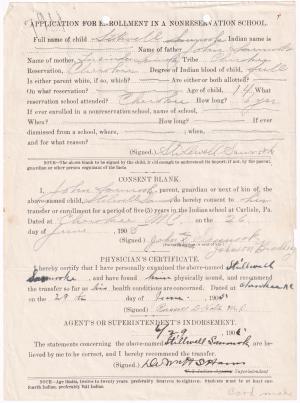 APPLICATION FOR ENROLLMENT IN A NONRESERVATION SCHOOL.
Full name of child Stilwell Saunooke Indian name is
Name of father John Saunooke
Name of mother, Tribe Cherokee
Reservation, Cherokee Degree of Indian blood of child, full
Is either parent white, if so, which? Are either or both allotted?
On what reservation? Age of child, 14 What
reservation school attended? Cherokee How long? 6 yrs
If ever enrolled in a nonreservation school, name of school,
When? How long? If ever
dismissed from a school, where, when,
and for what reason?
(Signed) Stilwell Saunook
NOTE.—The above blank to be signed by the child, if old enough to understand its import; if not, by the parent, guardian or other person cognizant of the facts.
CONSENT BLANK.
I, John Saunook, parent, guardian or next of kin of the
above-named child, Stilwell do hereby consent to his
transfer or enrollment for a period of five (5) years in the Indian school at Carlisle, Pa.
Dated at Cherokee N.C. on the 26
day of June 190
(Signed) John Saunook
PHYSICIAN'S CERTIFICATE.
I hereby certify that I have personally examined the above-named Stillwell
Saunooke, and have found him physically sound, and recommend
the transfer so far as his health conditions are concerned. Dated at Cherokee N.C.
on the 29 th day of June 190
(Signed) M.D.
AGENT'S OR SUPERINTENDENT'S INDORSEMENT.
6/29 190
The statements concerning the above-named Stillwell Saunook are be-
lieved by me to be correct, and I hereby recommend the transfer.
(Signed)
Superintendent
NOTE.—Age limits, twelve to twenty years, preferably fourteen to eighteen. Students must be at least one-fourth Indian, preferably full Indian.
Card made